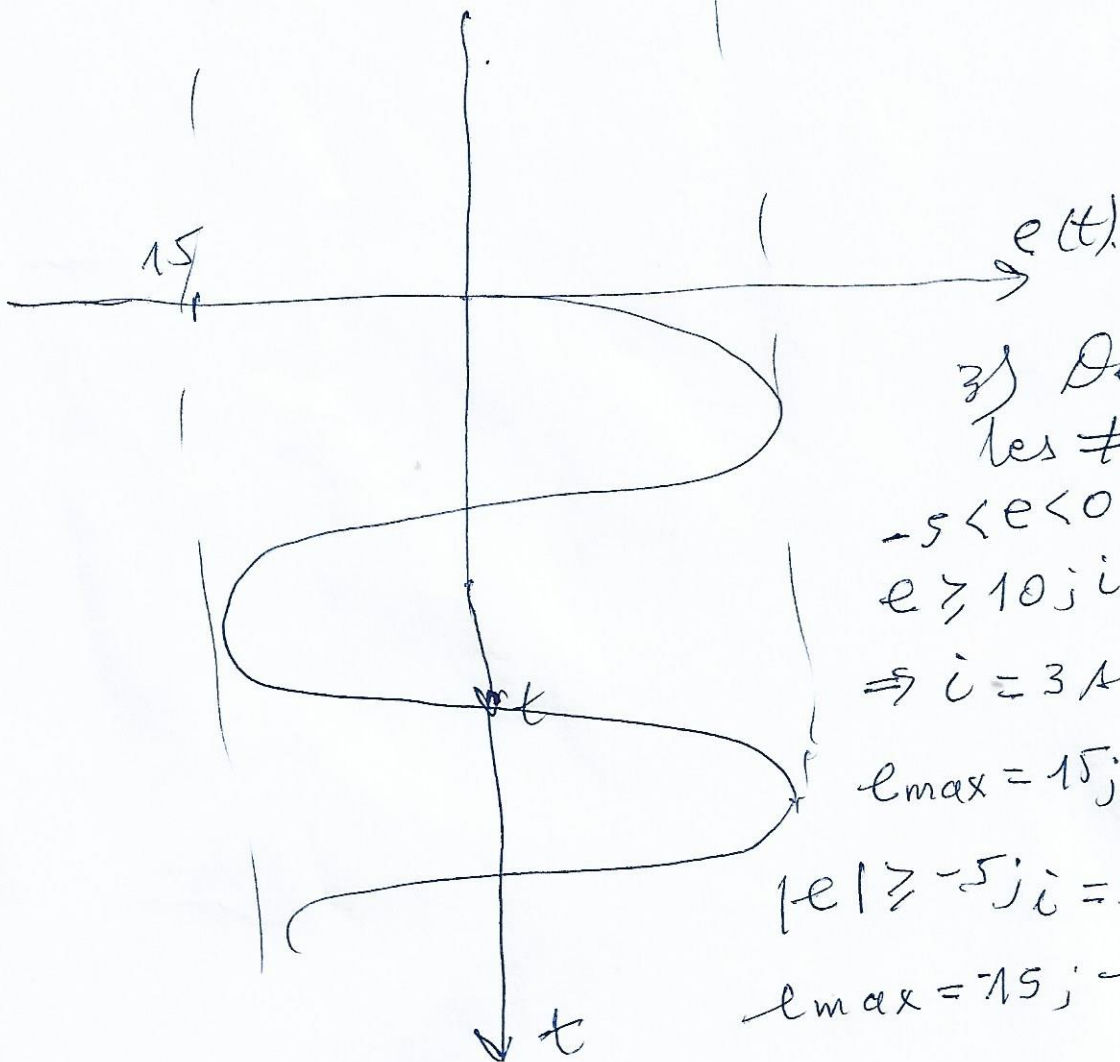 15
e(t).
3)
les ≠
-5<e<0
e ≥ 10 ; i
⇒ i = 3 A
t
emax = 15 ;
|e| ≥ -5 ; i =
emax = -15 ; -
t